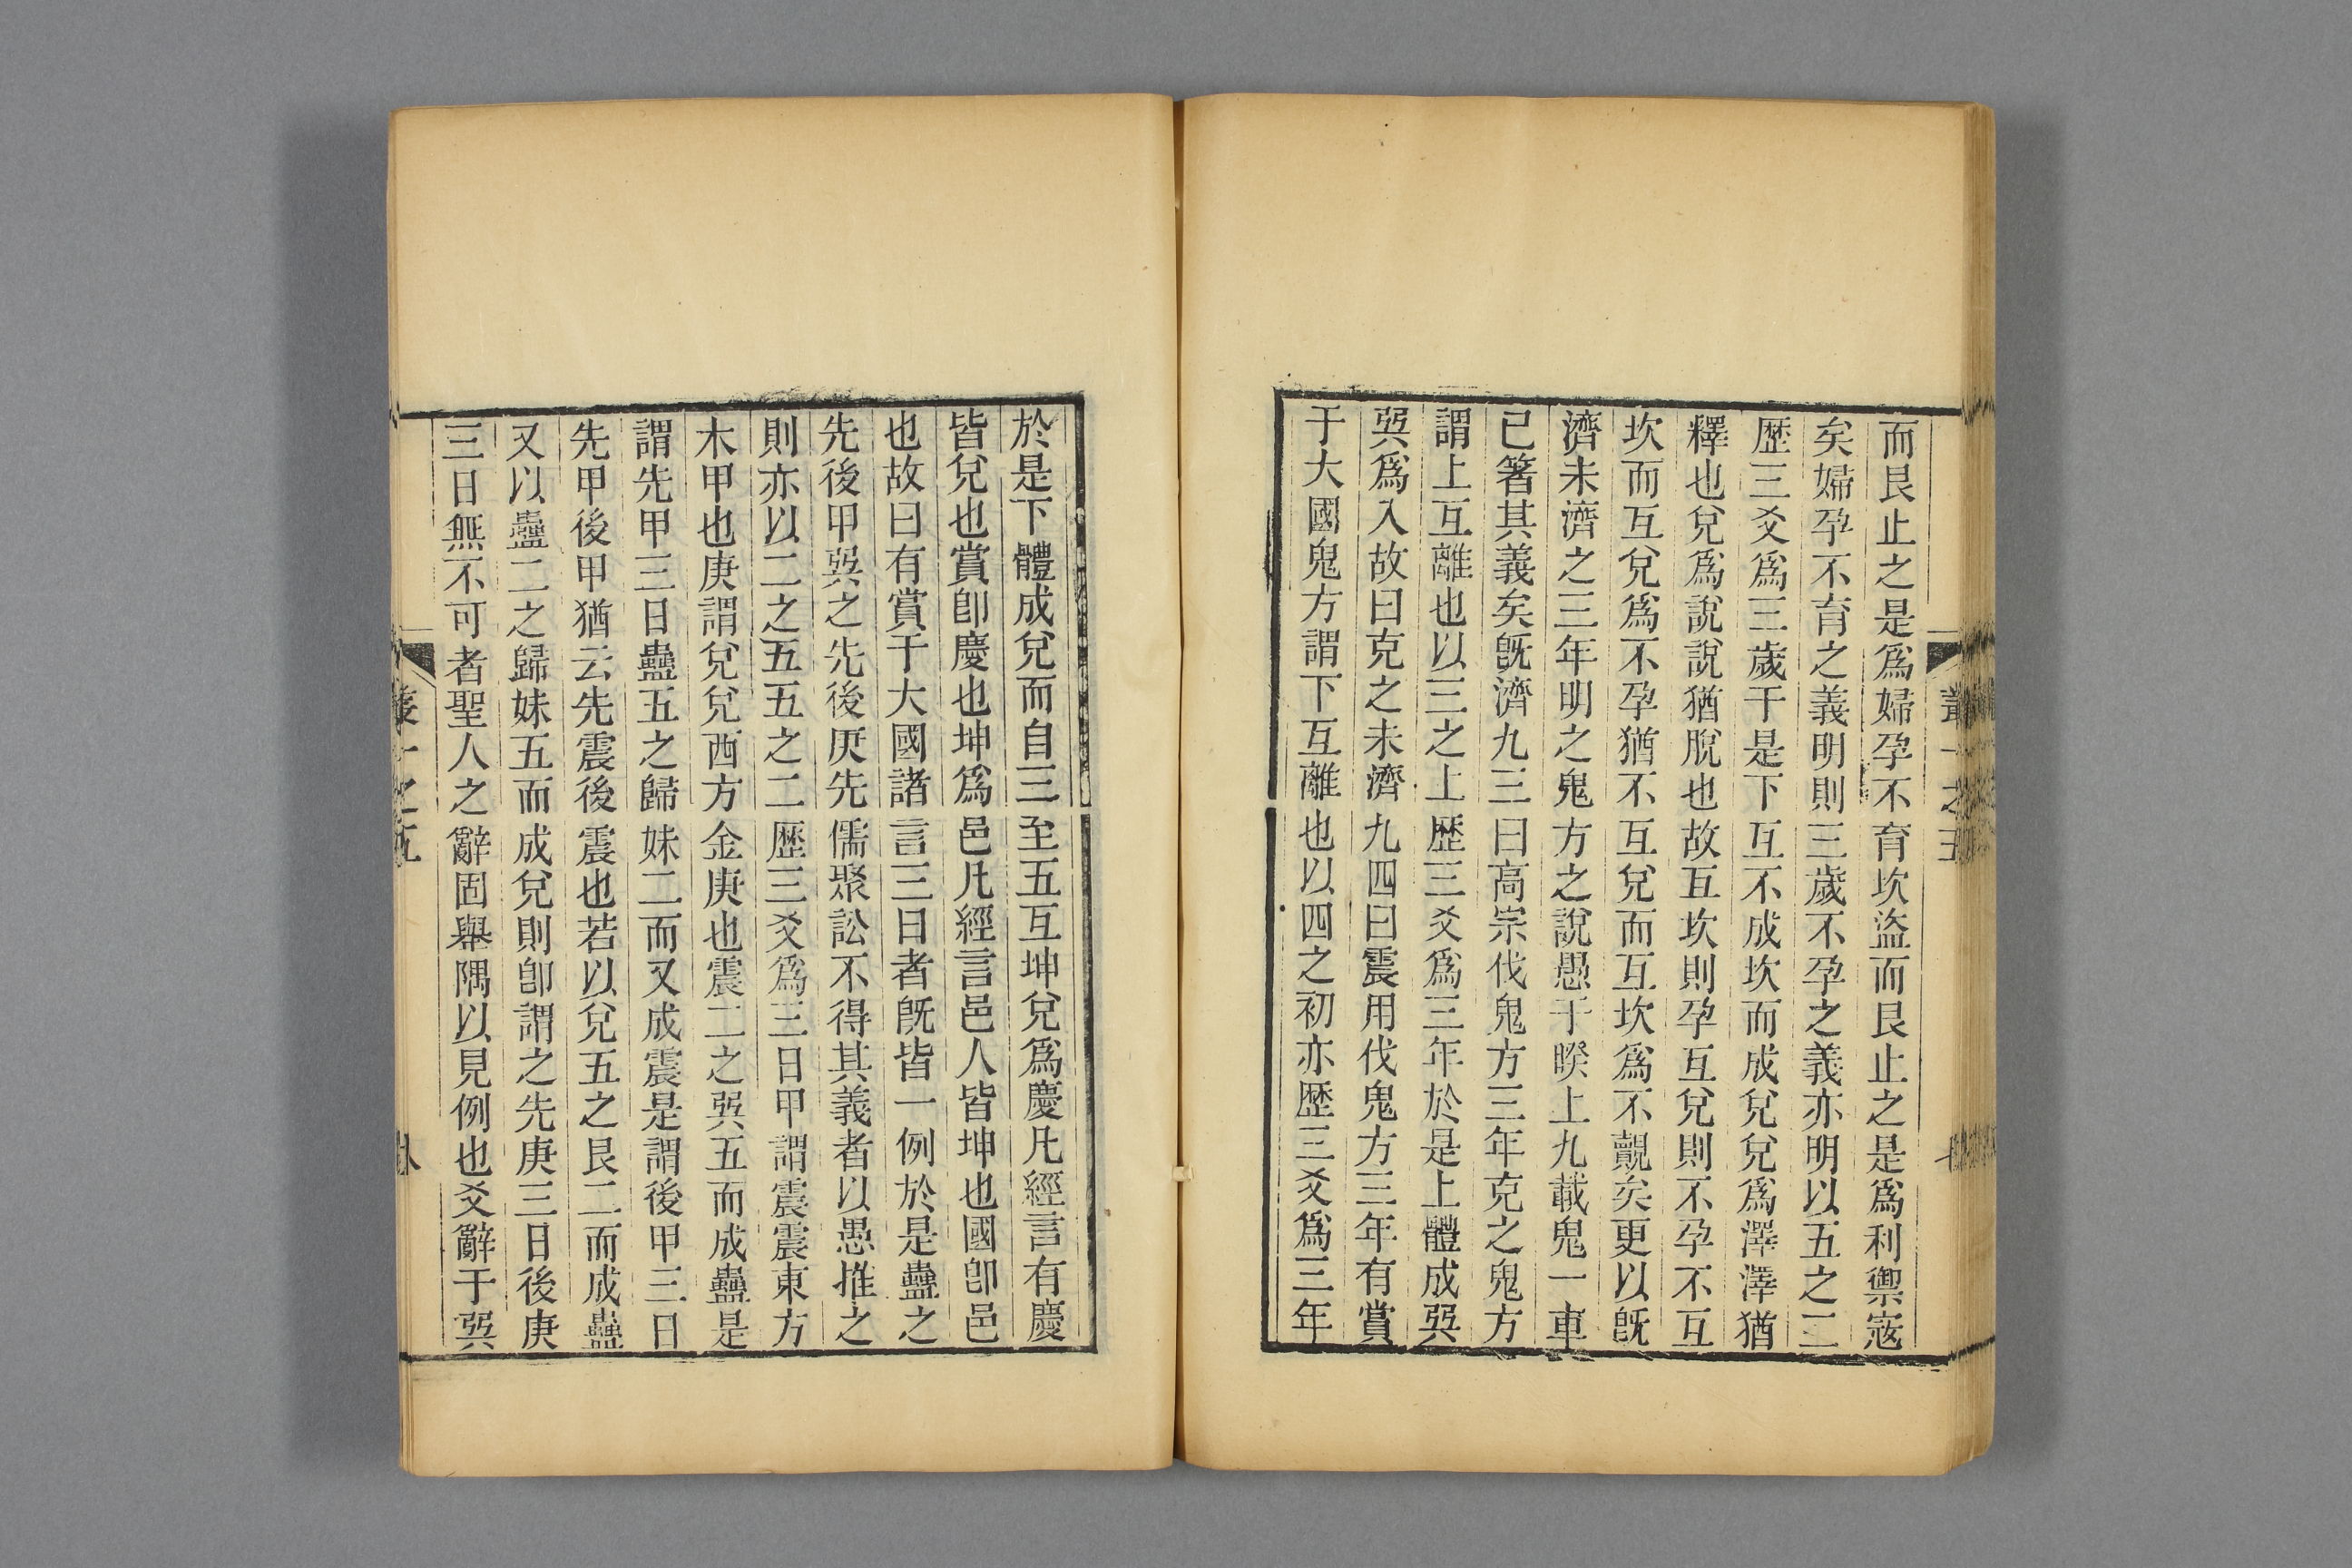 而艮止之是爲婦孕不育坎盜而艮止之是爲利禦寇
矣婦孕不育之義明則三歲不孕之義亦明以五之二
歷三爻爲三歲于是下互不成坎而成兌兌爲澤澤猶
釋也兌爲說說猶脫也故互坎則孕互兌則不孕不互
坎而互兌爲不孕猶不互兌而互坎爲不覿矣更以旣
濟未濟之三年明之鬼方之說愚于暌上九載鬼一車
已箸其義矣旣濟九三曰高宗伐鬼方三年克之鬼方
謂上互離也以三之上歷三爻爲三年於是上體成巽
巽爲入故曰克之未濟九四曰震用伐鬼方三年有賞
于大國鬼方謂下互離也以四之初亦歷三爻爲三年
於是下體成兌而自三至五互坤兌爲慶凡經言有慶
皆兌也賞卽慶也坤爲邑凡經言邑人皆坤也國卽邑
也故曰有賞于大國諸言三日者旣皆一例於是蠱之
先後甲巽之先後庚先儒聚訟不得其義者以愚推之
則亦以二之五五之二歷三爻爲三日甲謂震震東方
木甲也庚謂兌兌西方金庚也震二之巽五而成蠱是
謂先甲三日蠱五之歸妹二而又成震是謂後甲三日
先甲後甲猶云先震後震也若以兌五之艮二而成蠱
又以蠱二之歸妹五而成兌則卽謂之先庚三日後庚
三日無不可者聖人之辭固舉隅以見例也爻辭于巽